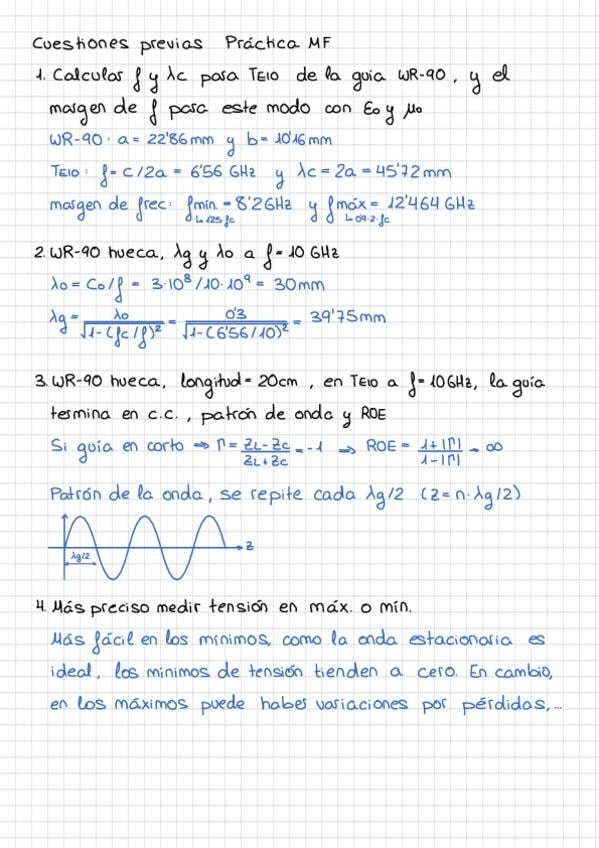 Cuestiones previas Práctica MF
1. Calcular f y λc para TE10 de la guia WR-90, y el
margen de f para este modo con ε0 y μ0
WR-90 · a = 22'86 mm y b = 10'16 mm
TE10: f = c/2a = 6'56 GHz y λc = 2a = 45'72 mm
margen de frec: fmín = 8'2 GHz y fmáx = 12'464 GHz
↳1.25 fc ↳0.9·2·fc
2. WR-90 hueca, λg y λ0 a f = 10 GHz
λ0 = C0/f = 3·10⁸/10·10⁹ = 30mm
λg = λ0/√(1-(fc/f)²) = 0'3/√(1-(6'56/10)²) = 39'75 mm
3. WR-90 hueca, longitud = 20cm, en TE10 a f = 10GHz, la guía
termina en c.c., patrón de onda y ROE
Si guía en corto ⇒ Γ = ZL-ZC/ZL+ZC = -1 ⇒ ROE = 1+|Γ|/1-|Γ| = ∞
Patrón de la onda, se repite cada λg/2 (z = n·λg/2)
λg/2 z
4. Más preciso medir tensión en máx. o mín.
Más fácil en los mínimos, como la onda estacionaria es
ideal, los minimos de tensión tienden a cero. En cambio,
en los máximos puede haber variaciones por pérdidas,...